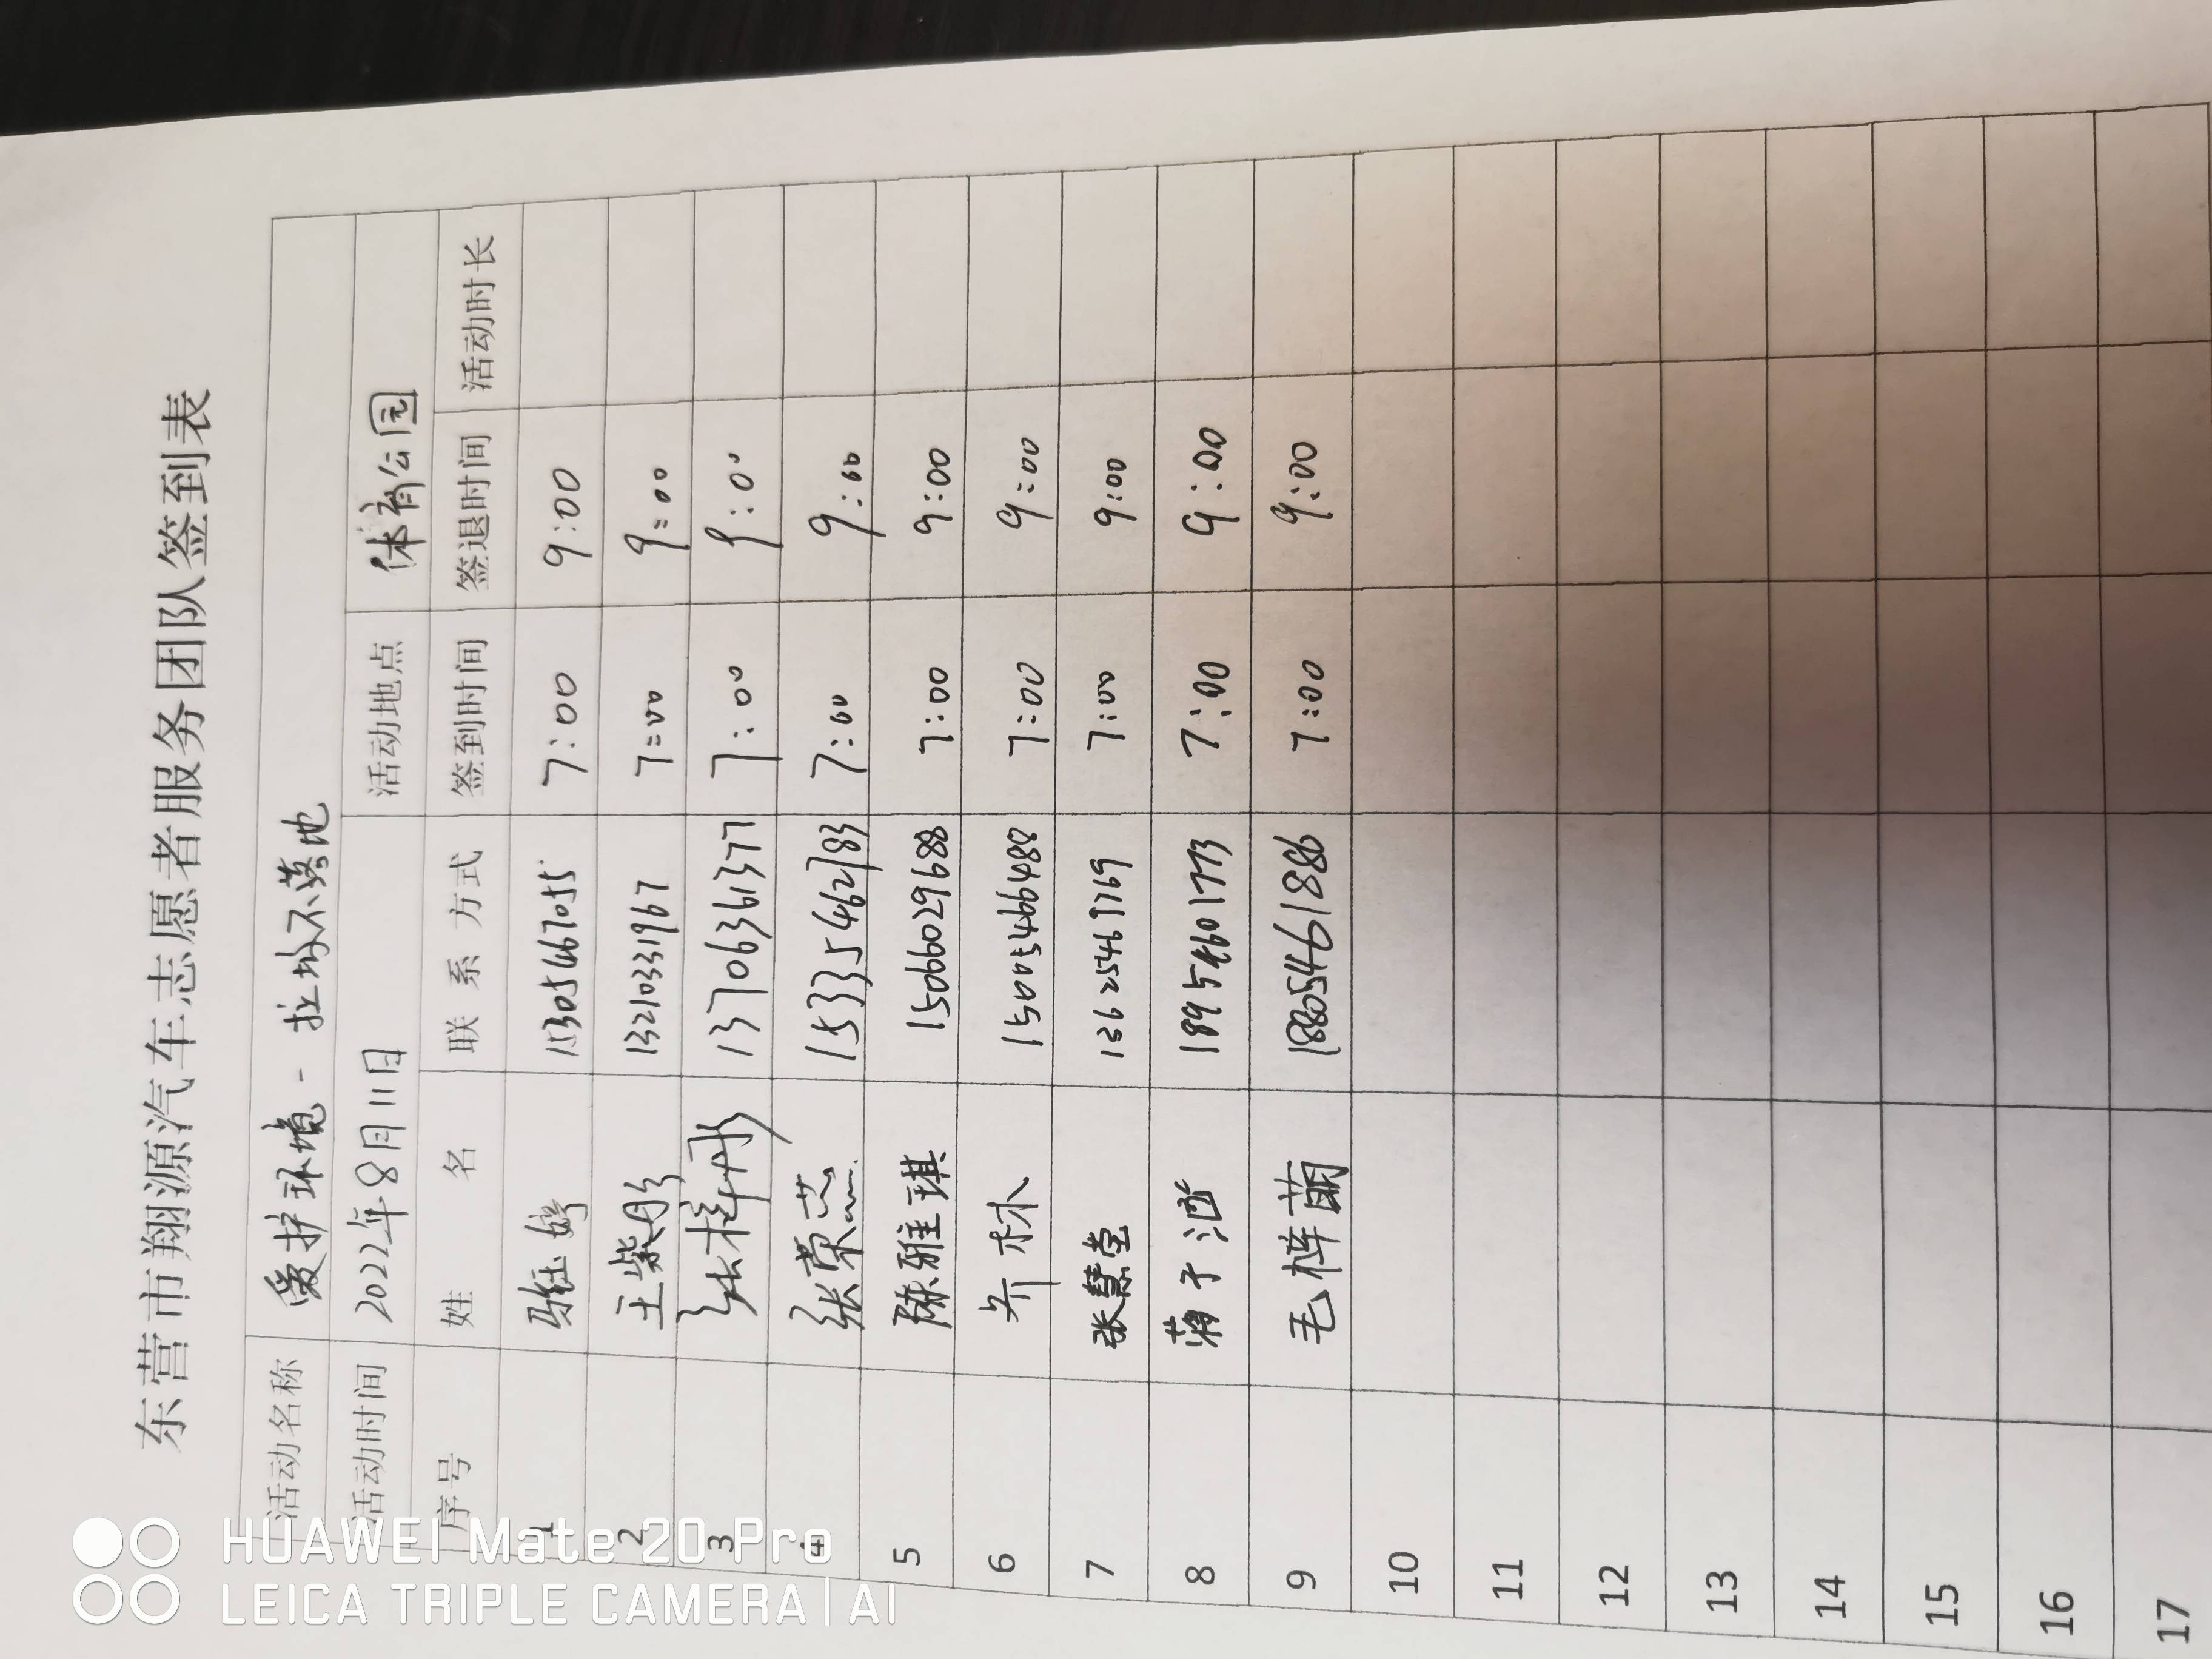 东营市翔源汽车志愿者服务团队签到表
活动名称 爱护环境-垃圾不落地
活动时间 2022年8月11日 活动地点 体育公园
序号 姓 名 联系方式 签到时间 签退时间 活动时长
1 7:00 9:00
2 王紫彤 13210331967 7:00 9:00
3 张梓彤 13706361377 7:00 9:00
4 张荣芯 15335462183 7:00 9:00
5 陈雅琪 15066029688 7:00 9:00
6 乔林 15005466488 7:00 9:00
7 张慧莹 7:00 9:00
8 蒋于涵 18954601773 7:00 9:00
9 毛梓萌 18805461886 7:00 9:00
10
11
12
13
14
15
16
17
HUAWEI Mate 20 Pro
LEICA TRIPLE CAMERA | AI